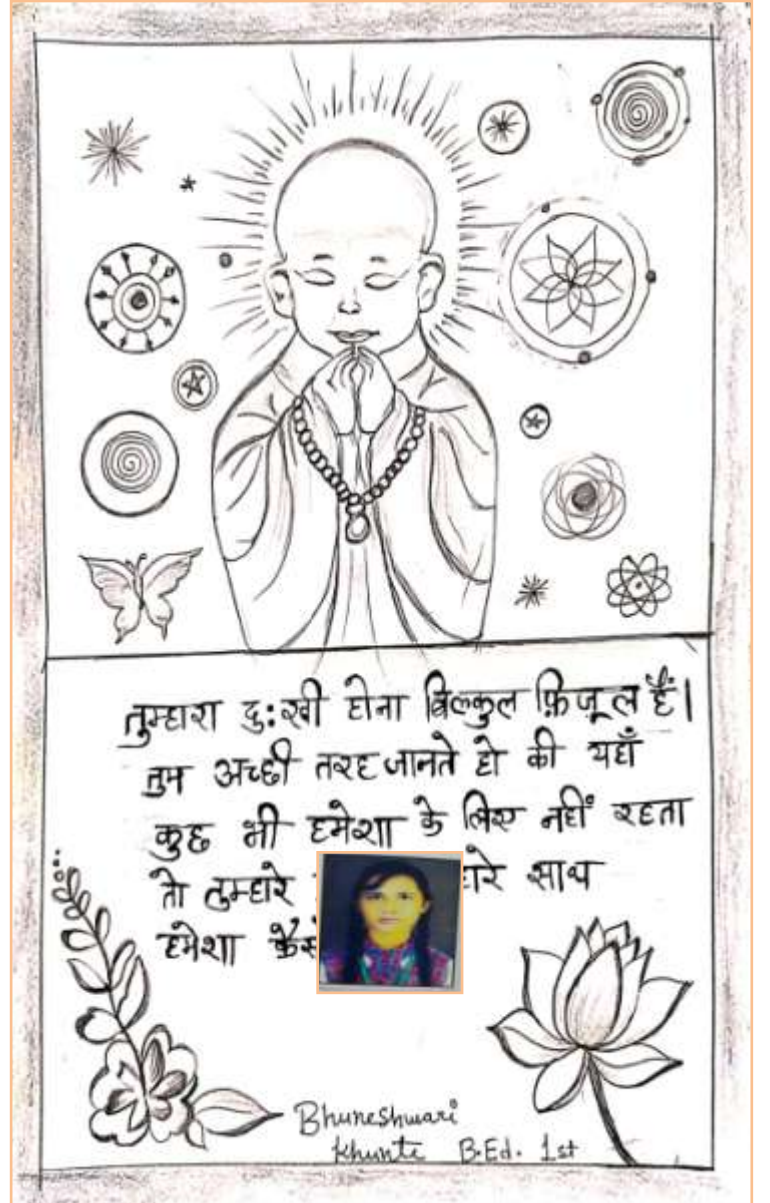 तुम्हारा दुःखी होना बिल्कुल फ़िज़ूल हैं।
तुम अच्छी तरह जानते हो की यहाँ
कुछ भी हमेशा के लिए नहीं रहता
तो तुम्हारे साथ
हमेशा
Bhuneshwari
Khunte B.Ed. 1st